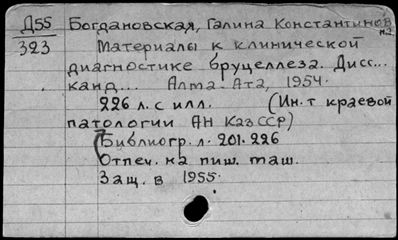 Д55 Богдановская, Галина Константинов
на
323 Материалы к клинической
диагностике бруцеллеза. Дисс...
канд... Алма-Ата, 1954.
226 л. с илл. (Ин-т краевой
патологии АН КазССР)
Библиогр. л. 201-226
Отпеч. на пиш. маш.
Защ. в 1955.